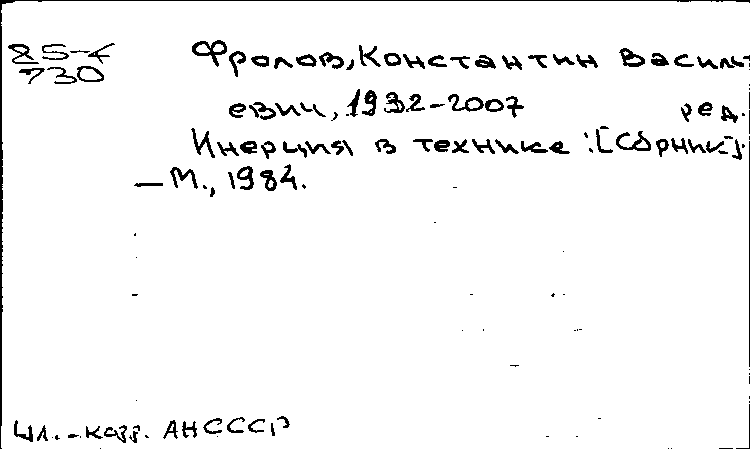 85-4
730
Фролов, Константин Василь
евич, 1932-2007 ред.
Инерция в технике : [Сборник].
— М., 1984.
Чл.-корр. АН СССР